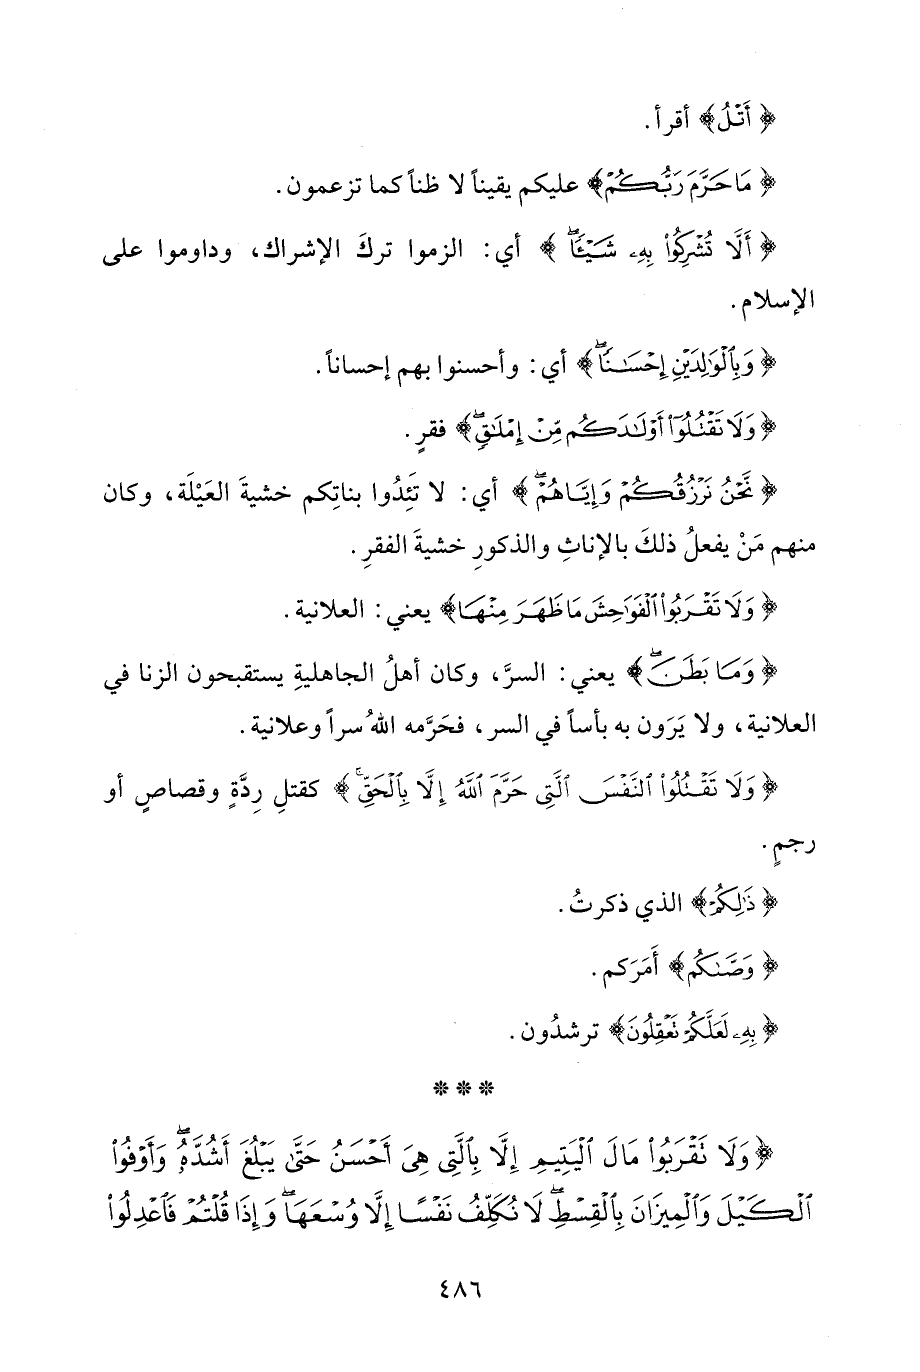 ﴿ أَتْلُ ﴾ أقرأ.
﴿ مَا حَرَّمَ رَبُّكُمْ ﴾ عليكم يقيناً لا ظناً كما تزعمون.
﴿ أَلَّا تُشْرِكُوا۟ بِهِۦ شَيْـًٔا ۖ ﴾ أي: الزموا تركَ الإشراك، وداوموا على
الإسلام.
﴿ وَبِٱلْوَٰلِدَيْنِ إِحْسَٰنًا ۖ ﴾ أي: وأحسنوا بهم إحساناً.
﴿ وَلَا تَقْتُلُوٓا۟ أَوْلَٰدَكُم مِّنْ إِمْلَٰقٍ ۖ ﴾ فقرٍ.
﴿ نَّحْنُ نَرْزُقُكُمْ وَإِيَّاهُمْ ۖ ﴾ أي: لا تَئِدُوا بناتِكم خشيةَ العَيْلَة، وكان
منهم مَنْ يفعلُ ذلكَ بالإناثِ والذكورِ خشيةَ الفقرِ.
﴿ وَلَا تَقْرَبُوا۟ ٱلْفَوَٰحِشَ مَا ظَهَرَ مِنْهَا ﴾ يعني: العلانية.
﴿ وَمَا بَطَنَ ۖ ﴾ يعني: السرَّ، وكان أهلُ الجاهليةِ يستقبحون الزنا في
العلانية، ولا يَرَون به بأساً في السر، فحَرَّمه اللهُ سراً وعلانية.
﴿ وَلَا تَقْتُلُوا۟ ٱلنَّفْسَ ٱلَّتِى حَرَّمَ ٱللَّهُ إِلَّا بِٱلْحَقِّ ۚ ﴾ كقتلِ رِدَّةٍ وقصاصٍ أو
رجمٍ.
﴿ ذَٰلِكُمْ ﴾ الذي ذكرتُ.
﴿ وَصَّىٰكُم ﴾ أَمَرَكم.
﴿ بِهِۦ لَعَلَّكُمْ تَعْقِلُونَ ﴾ ترشدُون.
* * *
﴿ وَلَا تَقْرَبُوا۟ مَالَ ٱلْيَتِيمِ إِلَّا بِٱلَّتِى هِىَ أَحْسَنُ حَتَّىٰ يَبْلُغَ أَشُدَّهُۥ ۖ وَأَوْفُوا۟
ٱلْكَيْلَ وَٱلْمِيزَانَ بِٱلْقِسْطِ ۖ لَا نُكَلِّفُ نَفْسًا إِلَّا وُسْعَهَا ۖ وَإِذَا قُلْتُمْ فَٱعْدِلُوا۟
٤٨٦